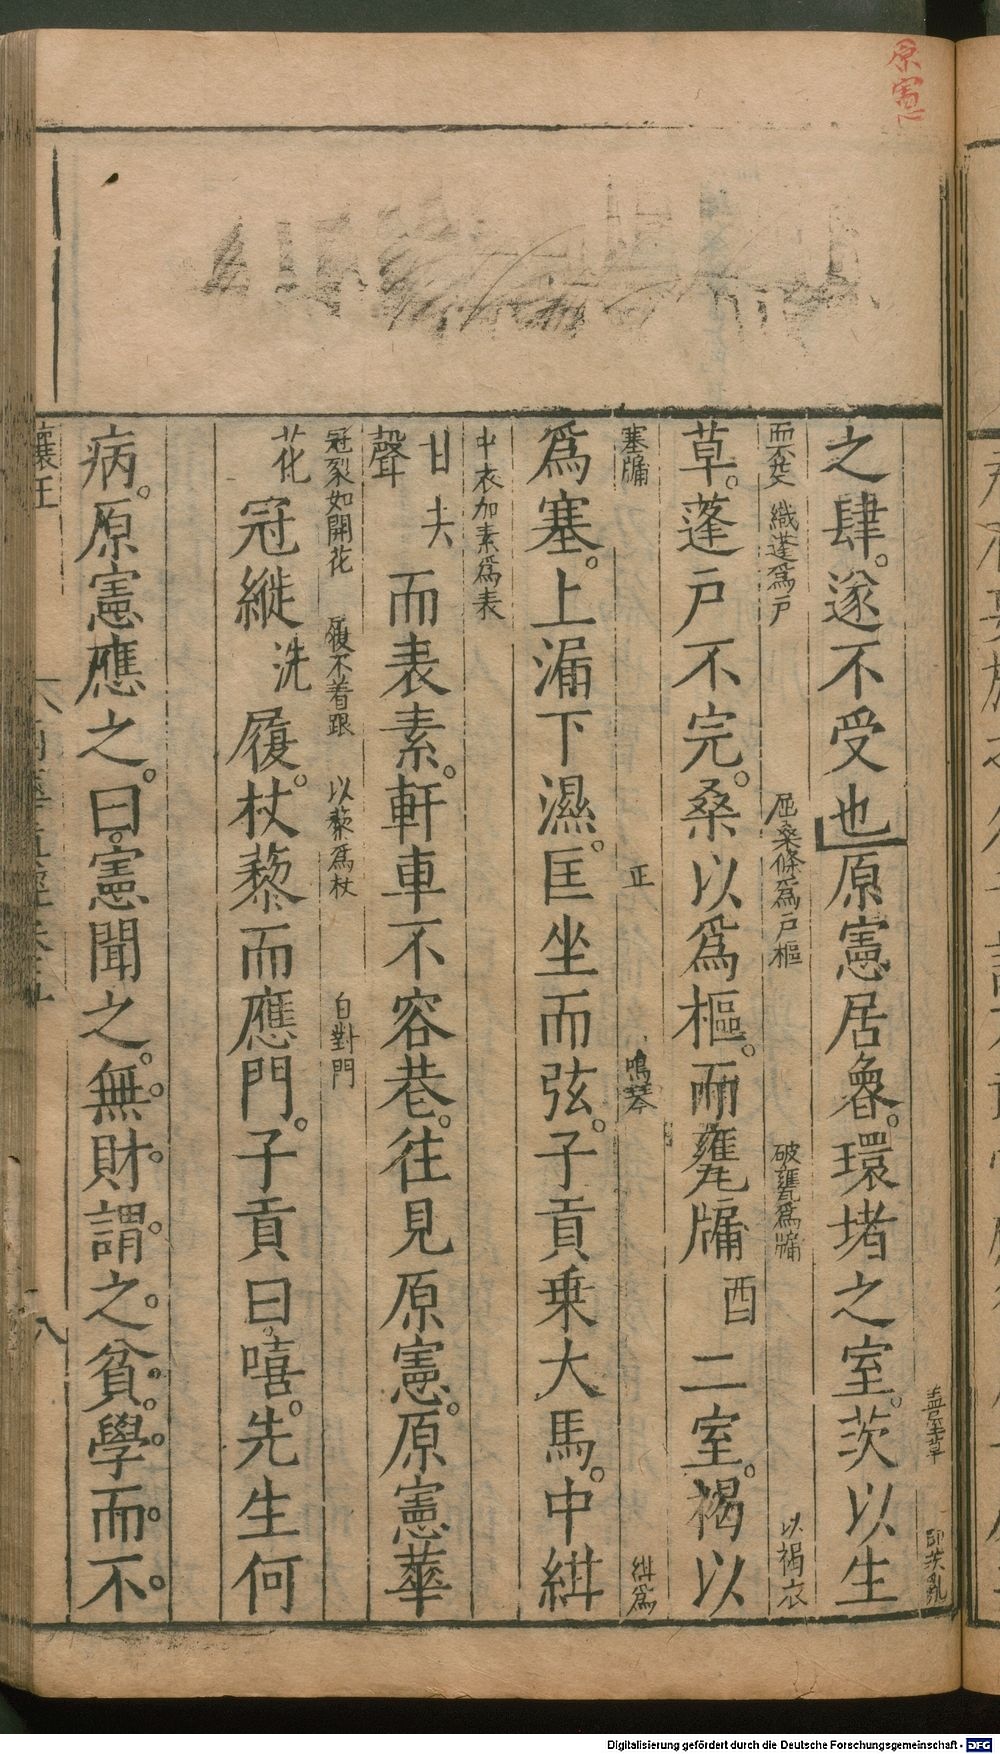 原憲
蓋屋草 即茨亂
之肆。遂不受也原憲居魯。環堵之室。茨以生
織蓬爲戶 屈桑條爲戶樞 破甕爲牖 以褐衣
草。蓬戶不完。桑以爲樞。而甕牖酉二室。褐以
塞牖 正 鳴琴 紺爲
爲塞。上漏下濕。匡坐而弦。子貢乘大馬。中紺
中衣加素爲表
甘夫聲而表素。軒車不容巷。往見原憲。原憲華
冠裂如開花 履不着跟 以藜爲杖 自對門
花冠縰洗履。杖藜而應門。子貢曰。嘻。先生何
病。原憲應之。曰。憲聞之。無財謂之貧。學而不
讓王
八
Digitalisierung gefördert durch die Deutsche Forschungsgemeinschaft - DFG